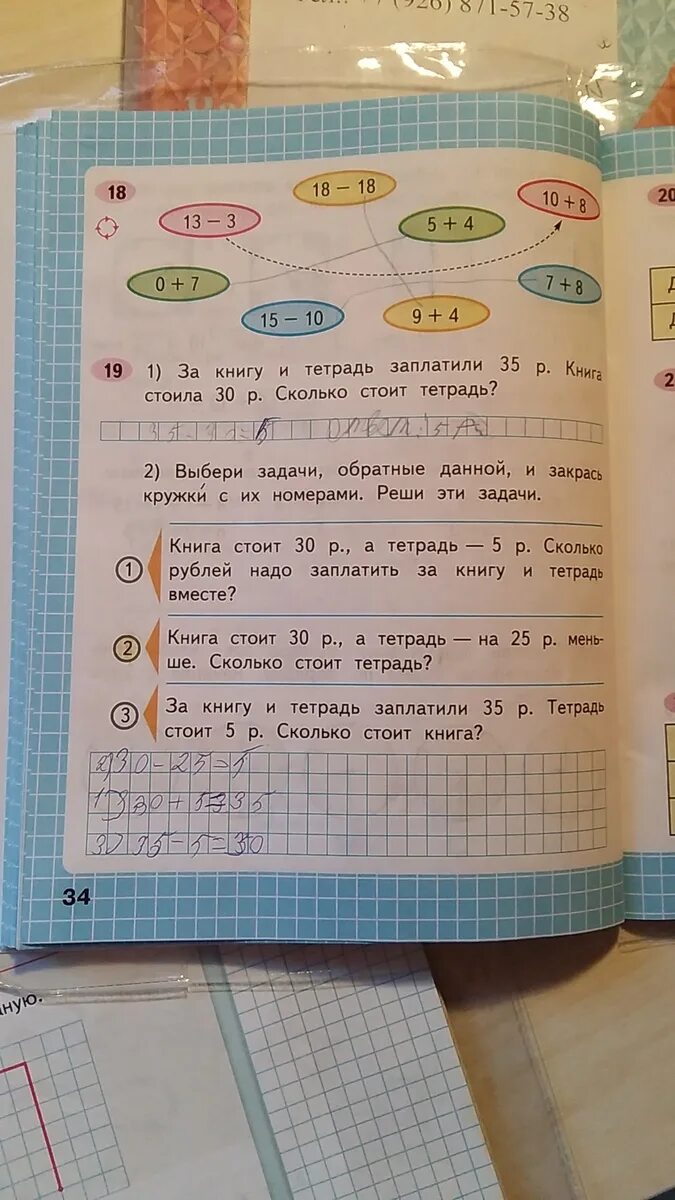 (926) 871-57-38
18
18 − 18
10 + 8
20
13 − 3
5 + 4
0 + 7
7 + 8
15 − 10
9 + 4
19 1) За книгу и тетрадь заплатили 35 р. Книга
стоила 30 р. Сколько стоит тетрадь?
35-30=5 Ответ: 5 р.
2) Выбери задачи, обратные данной, и закрась
кружки́ с их номерами. Реши эти задачи.
1 Книга стоит 30 р., а тетрадь — 5 р. Сколько
рублей надо заплатить за книгу и тетрадь
вместе?
2 Книга стоит 30 р., а тетрадь — на 25 р. мень-
ше. Сколько стоит тетрадь?
3 За книгу и тетрадь заплатили 35 р. Тетрадь
стоит 5 р. Сколько стоит книга?
2) 30-25=5
1) 30+5=35
3) 35-5=30
34
ную.